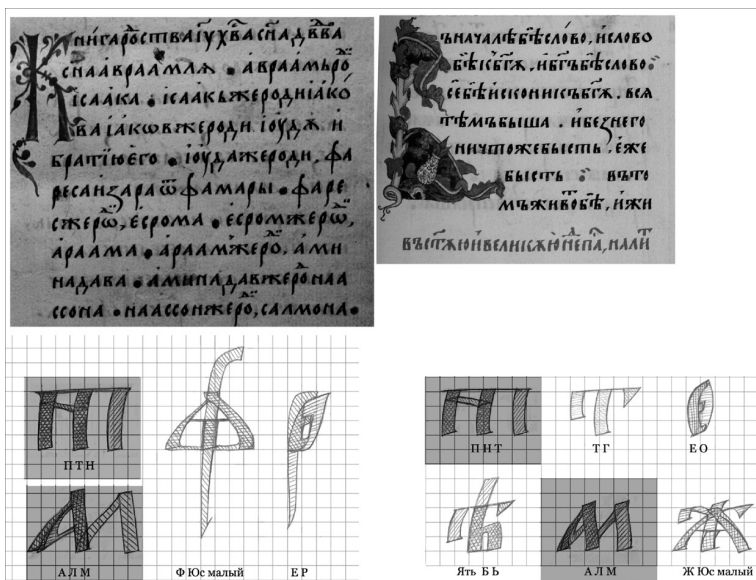 Книгарⷪ҇стваіѵ҃хв҃асн҃адв҃да
сн҃аавраамлѧ • авраамьрⷪ҇
ісаака • ісаакьжеродиіакѡ́
ваіакѡвжероди іоудѫ и
братїюего • іоудажероди, фа
ресаиꙁараѿфамары • фаре
сжерѡⷣ, есрома • есромжерѡⷣ,
араама • араамжероⷣ, ами
надава • аминадавжероⷣнаа
ссона • наассонжероⷣ, салмона •
Въначалѣбѣслово, ислово
бѣкъбг҃ѫ, ибг҃ъбѣслово
себѣисконикъбг҃ѫ. вся
тѣмъбыша. ибеꙁнего
ничтожебысть. еже
бысть въто
мъживотⷪ҇бѣ, ижи
П Т Н
А Л М
Ф Юс малый
Е Р
П Н Т
Т Г
Е О
Ять Б Ь
А Л М
Ж Юс малый